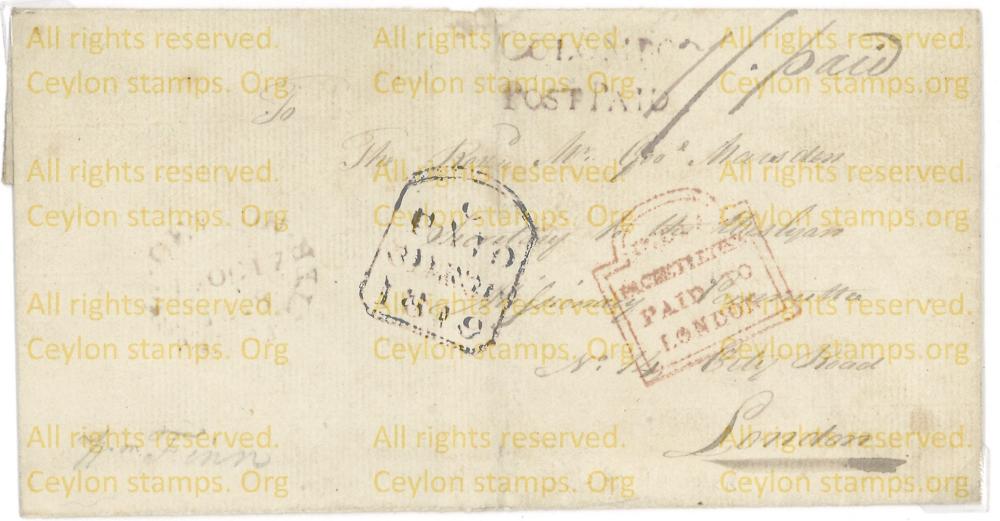 All rights reserved. All rights reserved. All rights reserved.
Ceylon stamps. Org Ceylon stamps. Org Ceylon stamps. Org
COLOMBO
POST PAID
paid
To
The Revd. Mr. Geoe. Marsden
Secretary to the Weslyan
All rights reserved. All rights reserved. All rights reserved.
Ceylon stamps. Org Ceylon stamps. Org Ceylon stamps. Org
Missionary Committee
No. 14 City Road
London
PAID
1819
PACKET LETTER
PAID TO
LONDON
OC 17
All rights reserved. All rights reserved. All rights reserved.
Ceylon stamps. Org Ceylon stamps. Org Ceylon stamps. Org
All rights reserved. All rights reserved. All rights reserved.
Ceylon stamps. Org Ceylon stamps. Org Ceylon stamps. Org
Wm. Finn